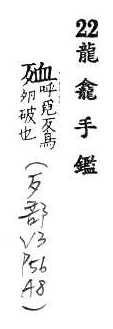 22 龍龕手鑑
殈
呼覓反鳥
夘破也
(歹部 V3 P56 A8)